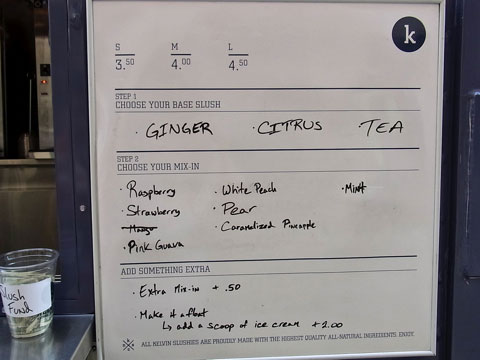 k
S M L
3.50 4.00 4.50
STEP 1
CHOOSE YOUR BASE SLUSH
· GINGER · CITRUS · TEA
STEP 2
CHOOSE YOUR MIX-IN
· Raspberry · White Peach · Mint
· Strawberry · Pear
· Mango · Caramelized Pineapple
· Pink Guava
ADD SOMETHING EXTRA
· Extra Mix-in + .50
· Make it a float
↳ add a scoop of ice cream + 2.00
ALL KELVIN SLUSHIES ARE PROUDLY MADE WITH THE HIGHEST QUALITY ALL-NATURAL INGREDIENTS. ENJOY.
Slush
Fund